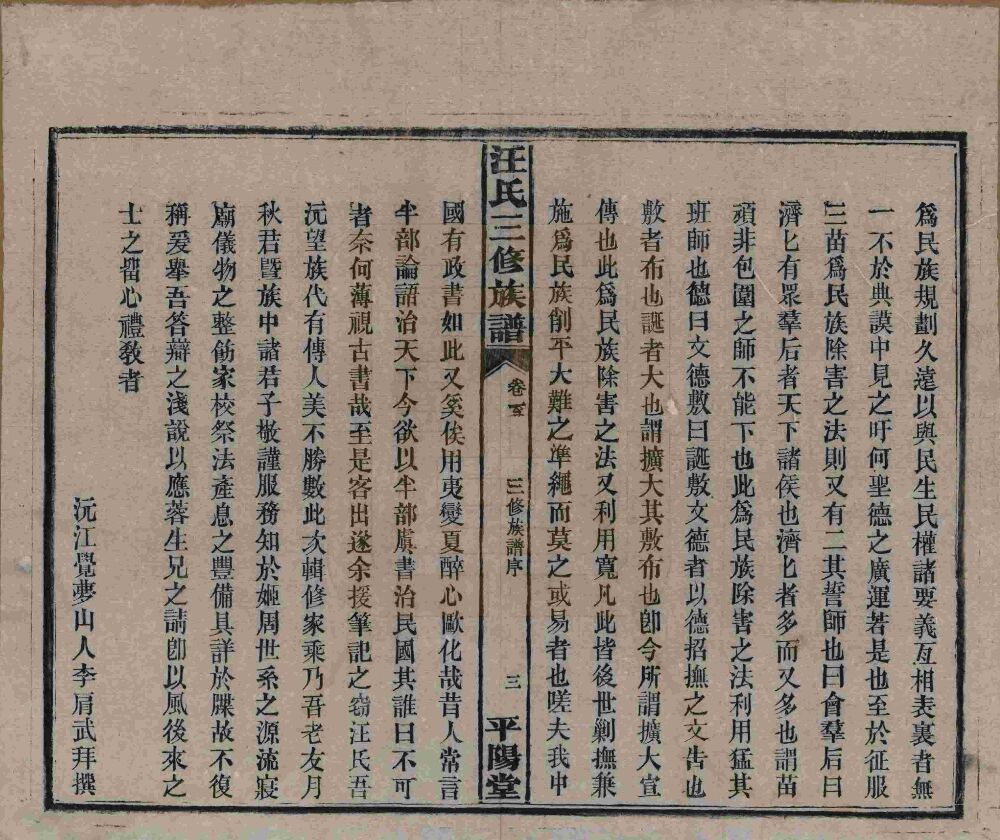 爲民族規劃久遠以與民生民權諸要義亙相表裏者無
一不於典謨中見之吁何聖德之廣運若是也至於征服
三苗爲民族除害之法則又有二其誓師也曰會羣后曰
濟匕有眾羣后者天下諸侯也濟匕者多而又多也謂苗
頑非包圍之師不能下也此爲民族除害之法利用猛其
班師也德曰文德敷曰誕敷文德者以德招撫之文告也
敷者布也誕者大也謂擴大其敷布也卽今所謂擴大宣
傳也此爲民族除害之法又利用寬凡此皆後世剿撫兼
施爲民族削平大難之準繩而莫之或易者也嗟夫我中
汪氏三修族譜
卷首
三修族譜序
三
平陽堂
國有政書如此又奚俟用夷變夏醉心歐化哉昔人常言
半部論語治天下今欲以半部虞書治民國其誰曰不可
者奈何薄視古書哉至是客出遂余援筆記之竊汪氏吾
沅望族代有傳人美不勝數此次輯修家乘乃吾老友月
秋君曁族中諸君子敬謹服務知於姬周世系之源流寢
廟儀物之整飭家校祭法產息之豐備具詳於牒故不復
稱爰舉吾答辯之淺說以應蓉生兄之請卽以風後來之
士之留心禮教者
沅江覺夢山人李肩武拜撰